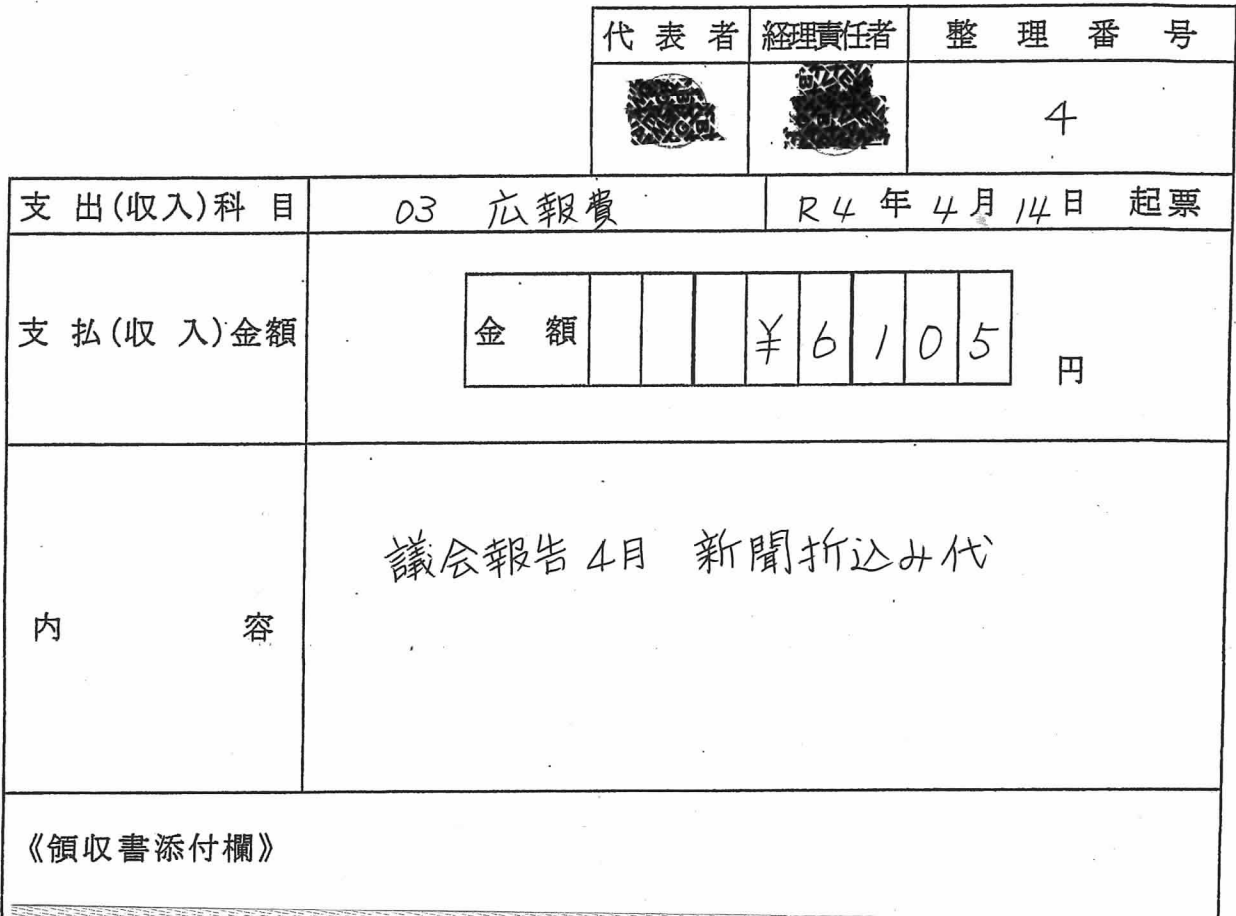 代表者 経理責任者 整理番号
4
支出(収入)科目 03 広報費 R4年4月14日 起票
支払(収入)金額 金額 ¥6105 円
議会報告4月 新聞折込み代
内容
《領収書添付欄》